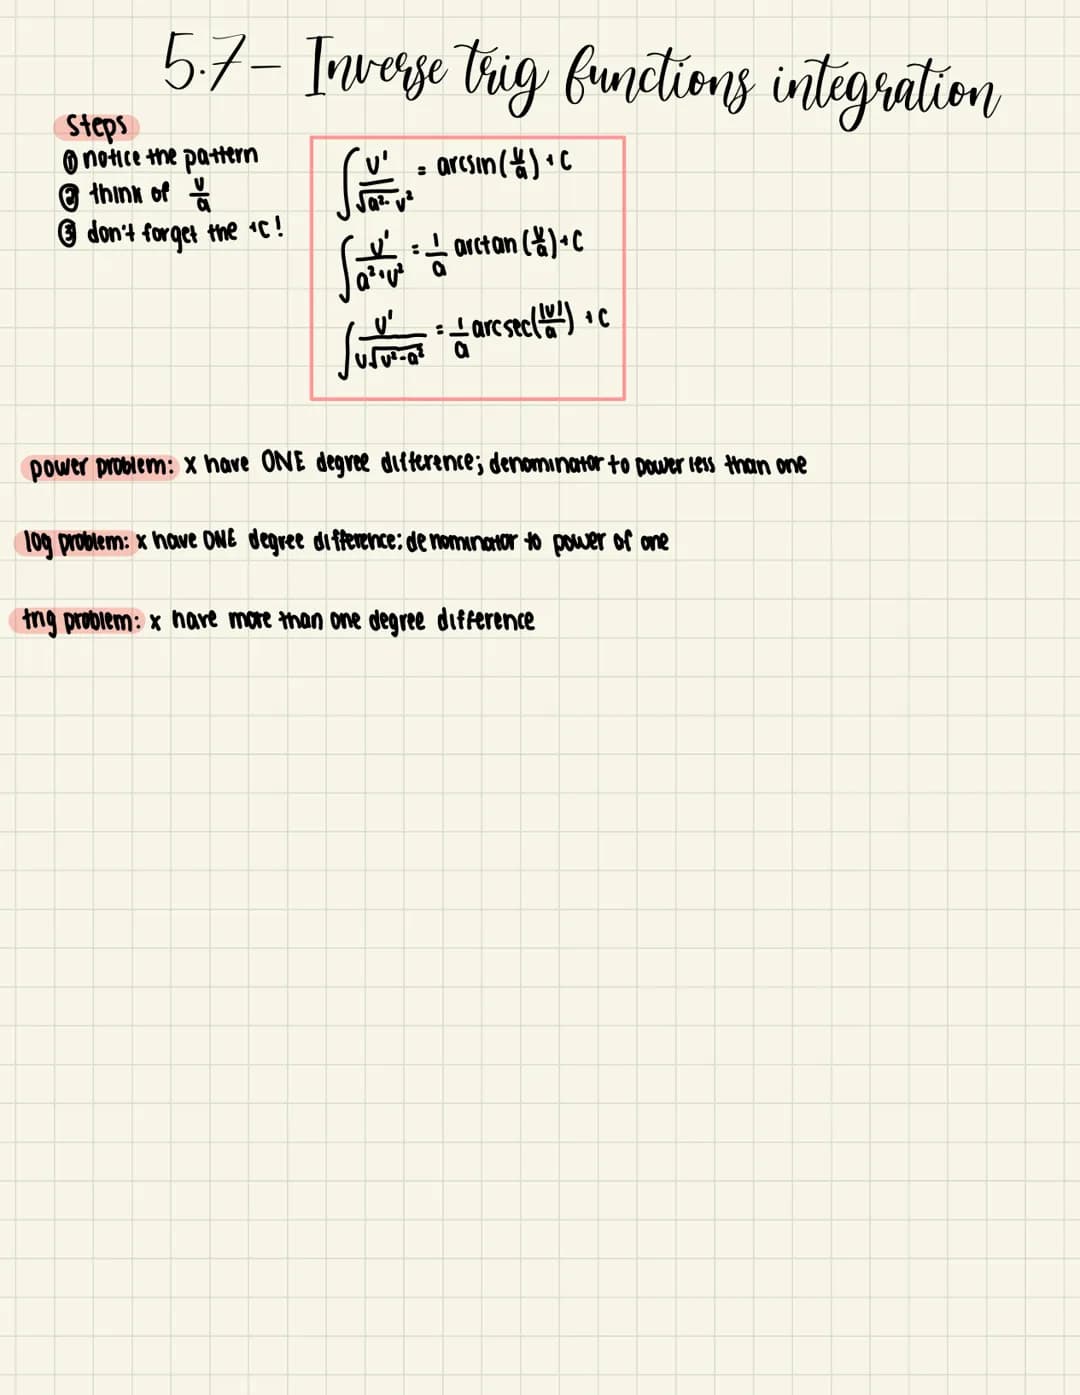 5.7- Inverse trig functions integration
Steps
① notice the pattern
② think of u/a
③ don't forget the +C!
∫ u'/√a²-u² = arcsin(u/a) + C
∫ u'/a²+u² = 1/a arctan(u/a)+C
∫ u'/u√u²-a² = 1/a arcsec(|u|/a) + C
power problem: x have ONE degree difference; denominator to power less than one
log problem: x have ONE degree difference: denominator to power of one
trig problem: x have more than one degree difference